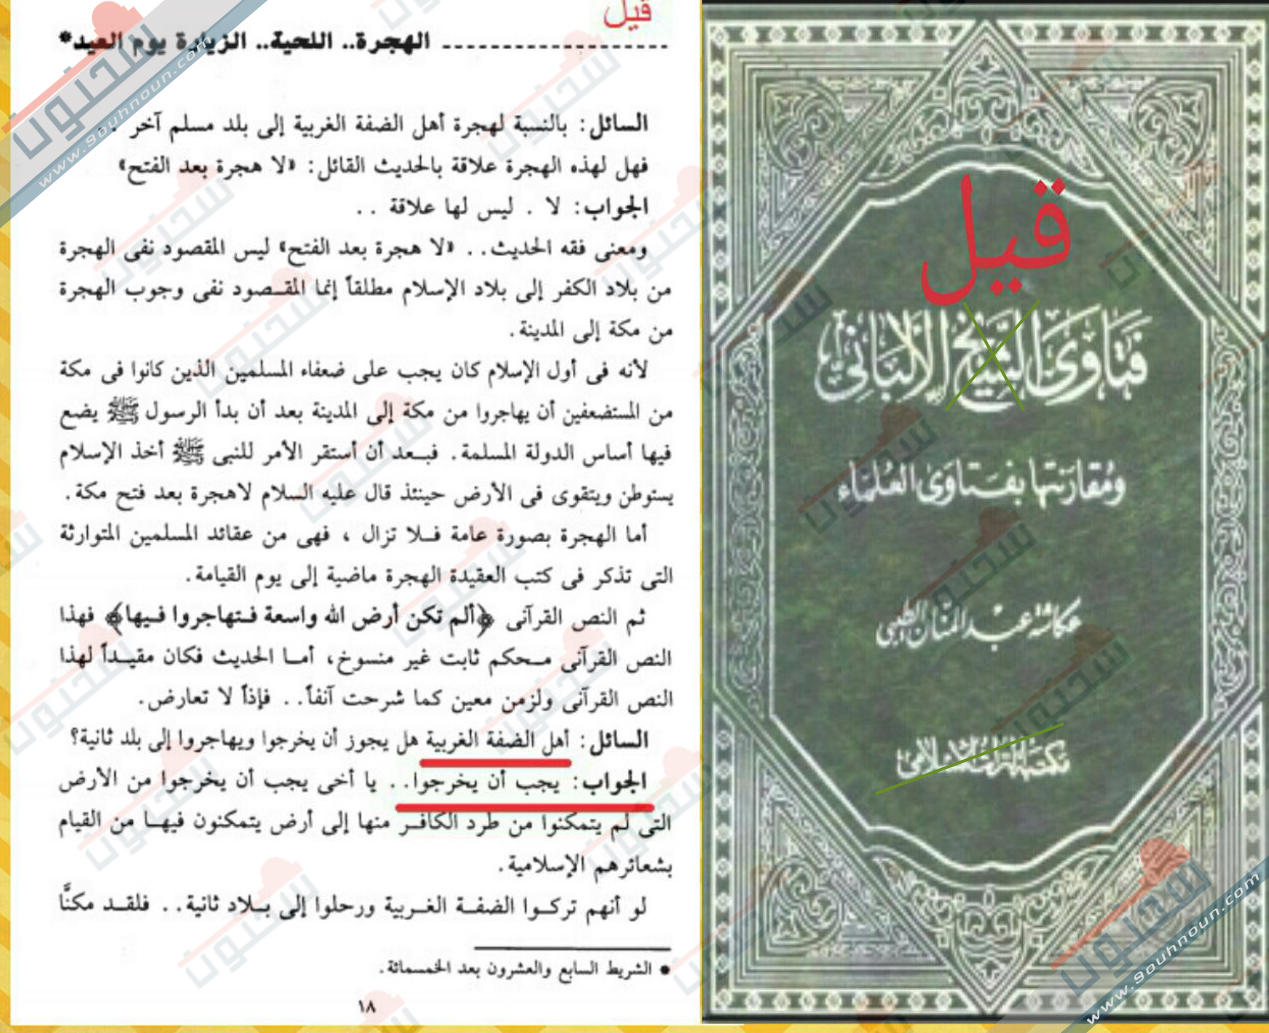 قيل
الهجرة.. اللحية.. الزيارة يوم العيد*
السائل: بالنسبة لهجرة أهل الضفة الغربية إلى بلد مسلم آخر ..
فهل لهذه الهجرة علاقة بالحديث القائل: «لا هجرة بعد الفتح»
الجواب: لا . ليس لها علاقة . .
ومعنى فقه الحديث. . «لا هجرة بعد الفتح» ليس المقصود نفى الهجرة
من بلاد الكفر إلى بلاد الإسلام مطلقاً إنما المقصود نفى وجوب الهجرة
من مكة إلى المدينة.
لأنه فى أول الإسلام كان يجب على ضعفاء المسلمين الذين كانوا فى مكة
من المستضعفين أن يهاجروا من مكة إلى المدينة بعد أن بدأ الرسول ﷺ يضع
فيها أساس الدولة المسلمة. فبعد أن أستقر الأمر للنبى ﷺ أخذ الإسلام
يستوطن ويتقوى فى الأرض حينئذ قال عليه السلام لاهجرة بعد فتح مكة.
أما الهجرة بصورة عامة فلا تزال ، فهى من عقائد المسلمين المتوارثة
التى تذكر فى كتب العقيدة الهجرة ماضية إلى يوم القيامة.
ثم النص القرآنى ﴿ألم تكن أرض الله واسعة فتهاجروا فيها﴾ فهذا
النص القرآنى محكم ثابت غير منسوخ، أما الحديث فكان مقيداً لهذا
النص القرآنى ولزمن معين كما شرحت آنفاً. . فإذاً لا تعارض.
السائل: أهل الضفة الغربية هل يجوز أن يخرجوا ويهاجروا إلى بلد ثانية؟
الجواب: يجب أن يخرجوا. . يا أخى يجب أن يخرجوا من الأرض
التى لم يتمكنوا من طرد الكافر منها إلى أرض يتمكنون فيها من القيام
بشعائرهم الإسلامية.
لو أنهم تركوا الضفة الغربية ورحلوا إلى بلاد ثانية. . فلقد مكنَّا
● الشريط السابع والعشرون بعد الخمسمائة.
١٨
قيل
فتاوى الشيخ الألباني
ومقارنتها بفتاوى العلماء
عكاشة عبد المنان الطيبي
مكتبة التراث الإسلامي
سحنون
www.9ouhnoun.com
سحنون
www.9ouhnoun.com